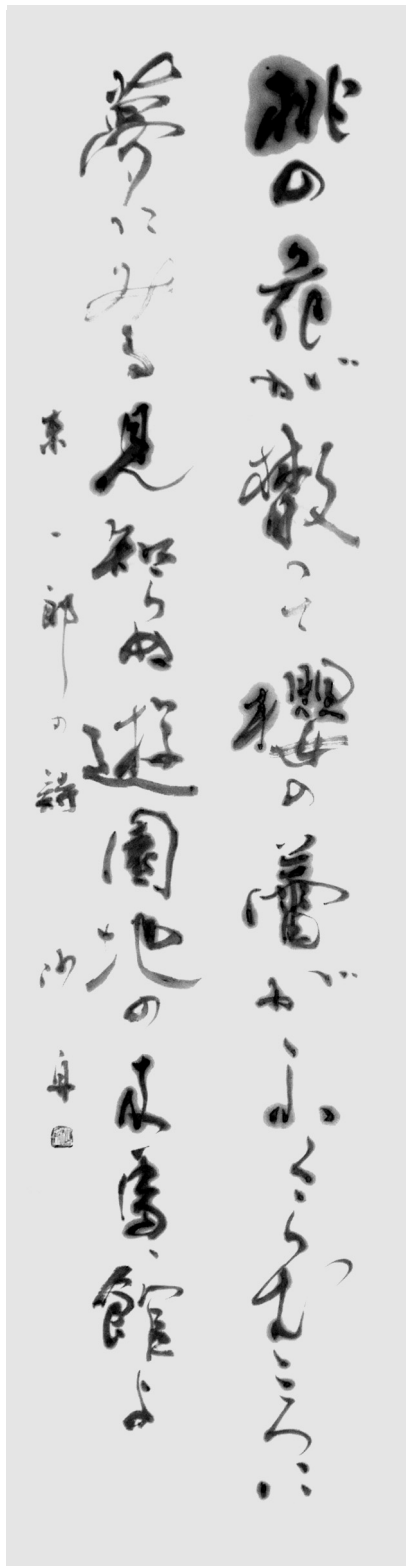 桃の花が散って櫻の蕾がふくらむころに
夢にみる見知らぬ遊園地の木馬館よ
東一郎の詩 沙舟